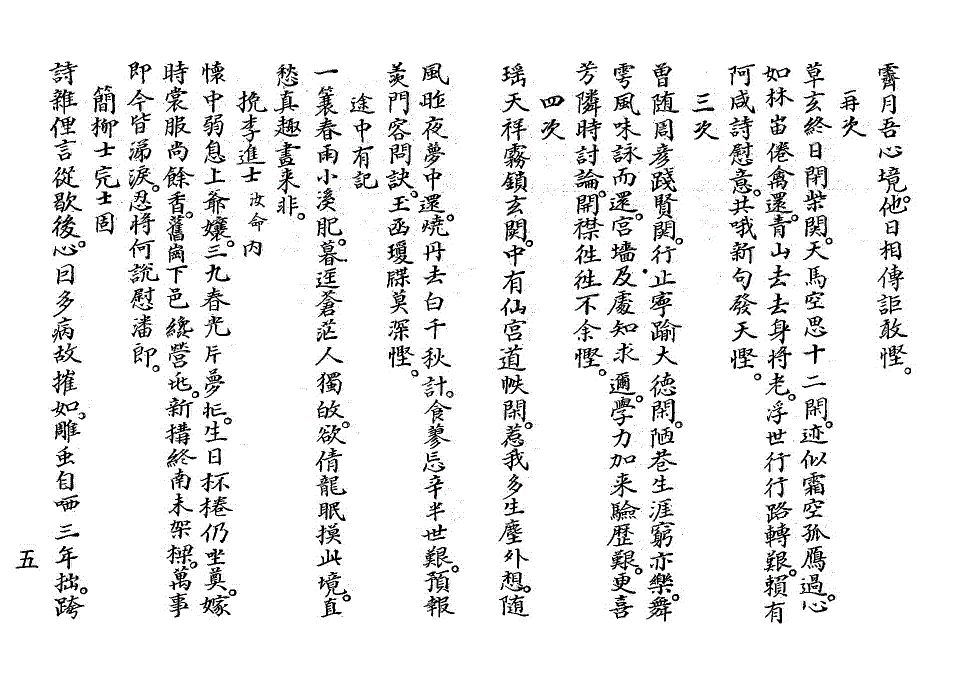 霽月吾心境。他日相傳詎敢慳。
再次
草玄終日閉柴関。天馬空思十二閑。迹似霜空孤鴈過。心
如林畄倦禽還。青山去去身將老。浮世行行路轉艱。頼有
阿咸詩慰意。共哦新句發天慳。
三次
曽随周彦踐賢関。行止寧踰大德閑。陋巷生涯窮亦樂。舞
雩風味詠而還。宮墻及處知求邇。學力加来驗歷艱。更喜
芳隣時討論。開襟徃徃不余慳。
四次
瑶天祥霧鎖玄関。中有仙宮道帙閑。惹我多生塵外想。随
風昨夜夢中還。燒丹去白千秋計。食蓼忘辛半世艱。預報
羙門客問訣。玉函瓊牒莫深慳。
途中有記
一簑春雨小溪肥。暮逕蒼茫人獨故。欲倩龍眠摸此境。直
愁真趣畫来非。
挽李進士 汝命內
懷中弱息上爺孃。三九春光片夢忙。生日杯棬仍坐奠。嫁
時裳服尚餘香。舊崗下邑纔營兆。新搆終南未架樑。萬事
即今皆涕淚。忍將何說慰潘郎。
簡柳士完士固
詩雜俚言從歇後。心曰多病故摧如。雕虫自哂三年拙。跨
五